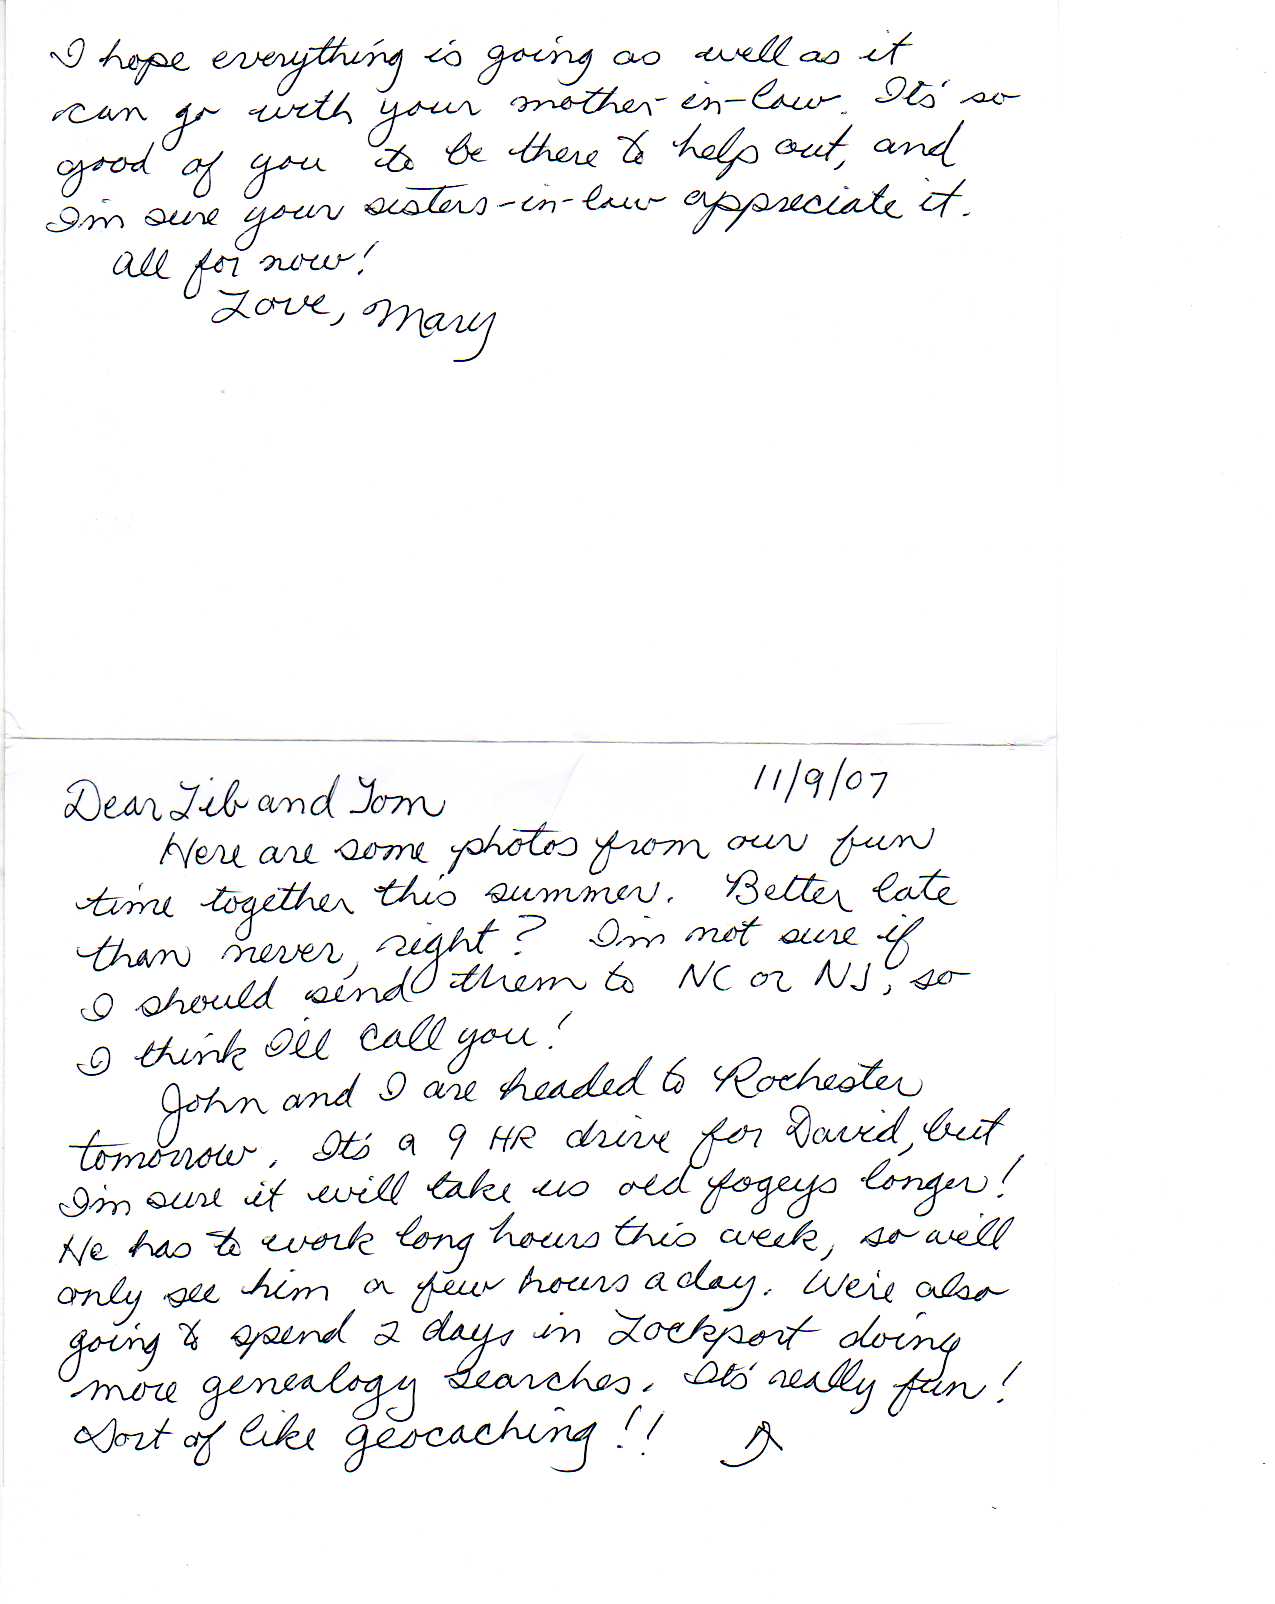 11/9/07
Dear Lib and Tom
Here are some photos from our fun
time together this summer. Better late
than never, right? I'm not sure if
I should send them to NC or NJ, so
I think I'll call you!
John and I are headed to Rochester
tomorrow. It's a 9 HR drive for David, but
I'm sure it will take us old fogeys longer!
He has to work long hours this week, so we'll
only see him a few hours a day. We're also
going to spend 2 days in Lockport doing
more genealogy searches. It's really fun!
Sort of like geocaching!!
I hope everything is going as well as it
can go with your mother-in-law. It's so
good of you to be there to help out, and
I'm sure your sisters-in-law appreciate it.
All for now!
Love, Mary